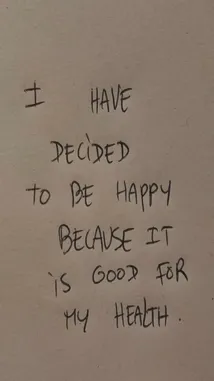 I HAVE
DECIDED
to BE HAPPY
BECAUSE IT
iS GOOD FOR
MY HEALTH.